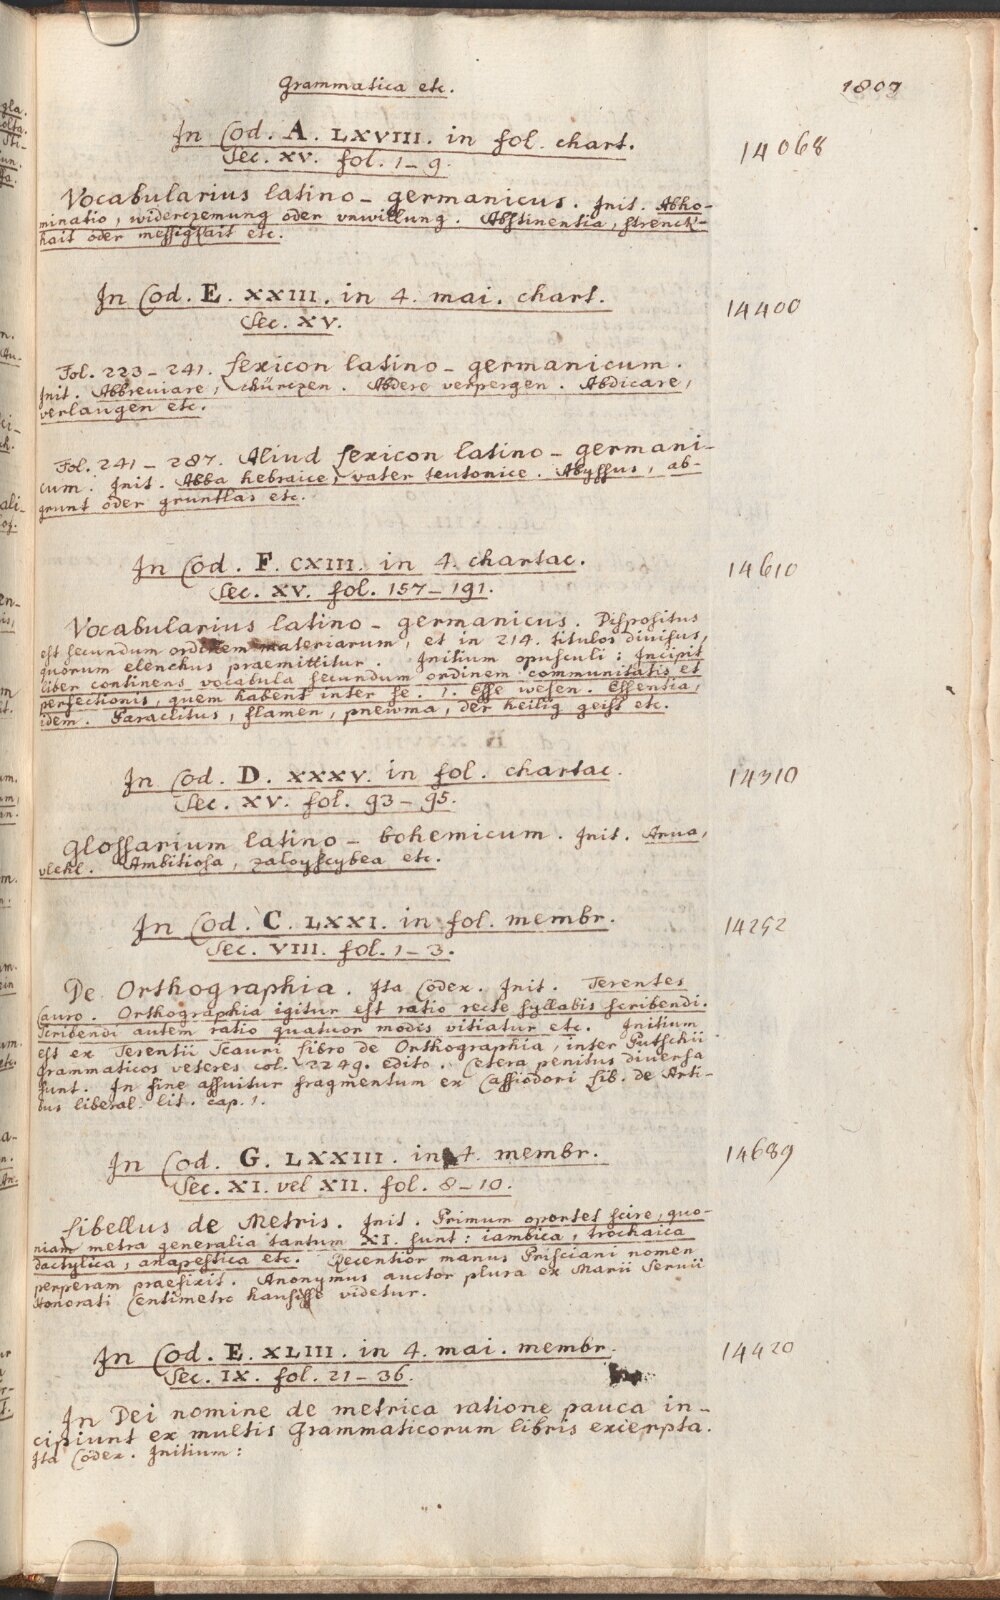 Grammatica etc.
1809
In Cod. A. LXVIII. in fol. chart.
14068
Sec. XV. fol. 1-9.
Vocabularius latino-germanicus. Init. Abho-
minatio, widerczemung oder vnwillung. Abstinentia, strenck-
hait oder messigkait etc.
In Cod. E. XXIII. in 4. mai. chart.
14400
Sec. XV.
Fol. 223-241. Lexicon latino-germanicum.
Init. Abbreuiare, chürczen. Abdere verpergen. Abdicare,
verlaugen etc.
Fol. 241-287. Aliud Lexicon latino-germani-
cum. Init. Abba hebraice, vater teutonice. Abyssus, ab-
grunt oder gruntlas etc.
In Cod. F. CXIII. in 4. chartac.
14610
Sec. XV. fol. 157-191.
Vocabularius latino-germanicus. Dispositus
est secundum ordinem materiarum, et in 214. titulos divisus,
quorum elenchus praemittitur. Initium opusculi: Incipit
liber continens vocabula secundum ordinem communitatis et
perfectionis, quem habent inter se. 1. Esse wesen. Essentia,
idem. Paraclitus, flamen, pnewma, der heilig geist etc.
In Cod. D. XXXV. in fol. chartac.
14310
Sec. XV. fol. 93-95.
Glossarium latino-bohemicum. Init. Arua,
vlehl. Ambitiosa, zaloyscybea etc.
In Cod. C. LXXI. in fol. membr.
14252
Sec. VIII. fol. 1-3.
De Orthographia. Ita Codex. Init. Terentes
Cauro. Orthographia igitur est ratio recte syllabis scribendi.
Scribendi autem ratio quatuor modis vitiatur etc. Initium
est ex Terentii Scauri Libro de Orthographia, inter Putschii
Grammaticos veteres col. 2249. edito. Cetera penitus diversa
sunt. In fine assuitur fragmentum ex Cassiodori Lib. de Arti-
bus liberal. lit. cap. 1.
In Cod. G. LXXIII. in 4. membr.
14689
Sec. XI. vel XII. fol. 8-10.
Libellus de Metris. Init. Primum oportet scire, quo-
niam metra generalia tantum XI. sunt: iambica, trochaica
dactylica, anapestica etc. Recentior manus Prisciani nomen
perperam praefixit. Anonymus auctor plura ex Marii Seruii
Honorati Centimetro hausisse videtur.
In Cod. E. XLIII. in 4. mai. membr.
14420
Sec. IX. fol. 21-36.
In Dei nomine de metrica ratione pauca in-
cipiunt ex multis Grammaticorum libris excerpta.
Ita Codex. Initium: